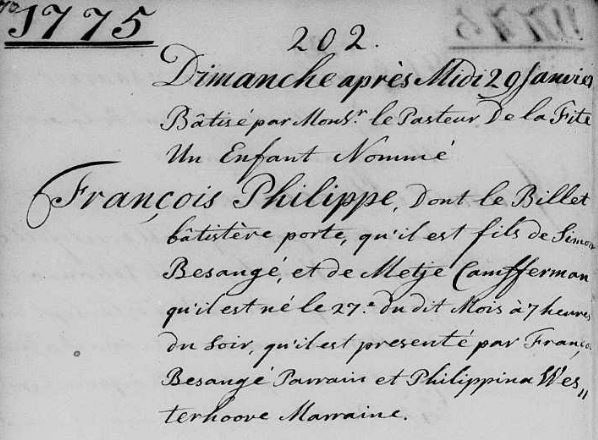 1775
202.
Dimanche après Midi 29 Janvier
Bâtisé par Monsr. le Pasteur De la Fite
Un Enfant Nommé
François Philippe, Dont le Billet
bâtistère porte, qu'il est fils de Simon
Besangé, et de Metje Camfferman
qu'il est né le 27.e du dit Mois à 7 heures
du Soir, qu'il est presenté par Franço.
Besangé Parrain et Philippina Wes„
terhoove Marraine.